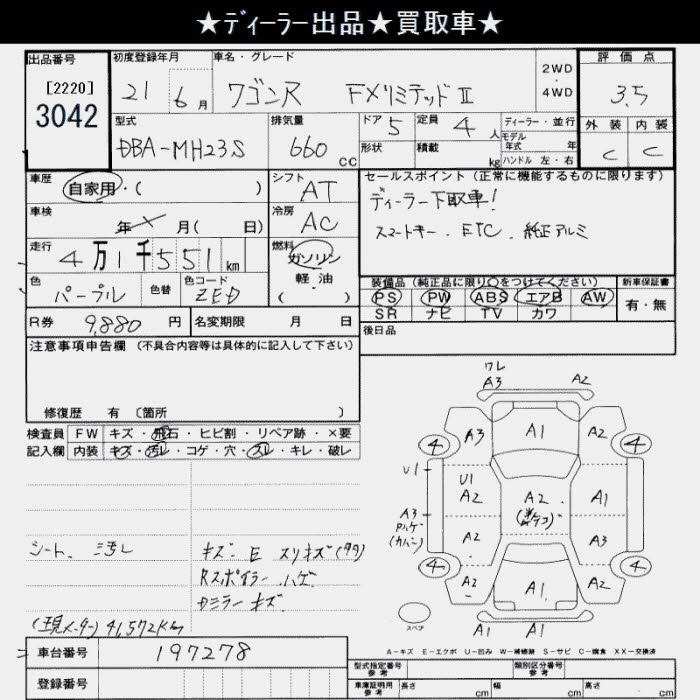 ★ディーラー出品★買取車★
出品番号 [2220] 3042
初度登録年月 21 6月
車名・グレード ワゴンR FXリミテッドⅡ 2WD・4WD
評価点 3.5
外装 C 内装 C
型式 DBA-MH23S
排気量 660 CC
ドア 5 形状
定員 4人 積載 kg
ディーラー・並行
モデル年式 年
ハンドル 左・右
車歴 自家用・( )
シフト AT
セールスポイント (正常に機能するものに限ります)
ディーラー下取車!
スマートキー . ETC . 純正アルミ
車検 年 月( 日)
冷房 AC
走行 4万1千551km
燃料 ガソリン 軽・油 ( )
色 パープル 色替 色コード ZED
装備品(純正品に限り○をつけてください)
PS PW ABS エアB AW
SR ナビ TV カワ
新車保証書 有・無
R券 9,880 円 名変期限 月 日
後日品
注意事項申告欄 (不具合内容等は具体的に記入して下さい)
修復歴 有 〔箇所 〕
検査員記入欄
FW キズ・飛石・ヒビ割・リペア跡・×要
内装 キズ・汚レ・コゲ・穴・スレ・キレ・破レ
シート 汚レ
キズ E スリキズ(タタ)
Rスポイラー ハゲ
Dミラー キズ
(現メーター) 41,572km
ワレ
A3 A2
4 A3 A1 A2 4
U1 U1
A2 A2 A1
A3 ハゲ
A2 A3
4 A2 A1 A2 4
A1 A1
スペア
A-キズ E-エクボ U-凹み W-補修跡 S-サビ C-腐食 XX-交換済
車台番号 197278
登録番号
型式指定番号 参考 類別区分番号 参考
車庫証明用 参考 長さ cm 幅 cm 高さ cm